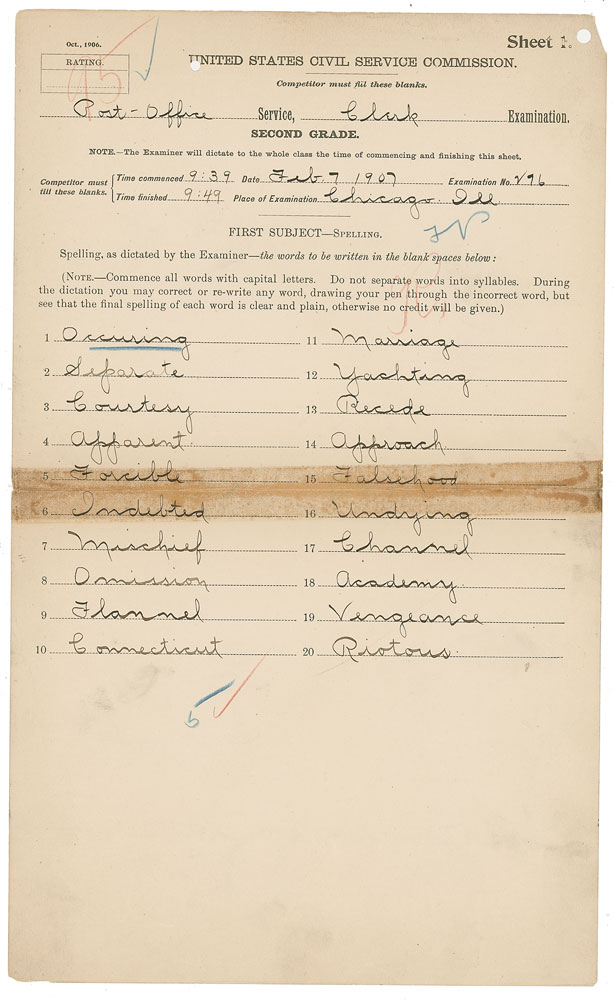 Oct., 1906.
Sheet 1.
RATING.
95
UNITED STATES CIVIL SERVICE COMMISSION.
Competitor must fill these blanks.
Post-Office Service, Clerk Examination.
SECOND GRADE.
NOTE.—The Examiner will dictate to the whole class the time of commencing and finishing this sheet.
Competitor must fill these blanks.
Time commenced 9:39 Date Feb. 7 1907 Examination No. 296
Time finished 9:49 Place of Examination Chicago. Ill
FIRST SUBJECT—SPELLING.
Spelling, as dictated by the Examiner—the words to be written in the blank spaces below:
(NOTE.—Commence all words with capital letters. Do not separate words into syllables. During
the dictation you may correct or re-write any word, drawing your pen through the incorrect word, but
see that the final spelling of each word is clear and plain, otherwise no credit will be given.)
1 Occuring
2 Separate
3 Courtesy
4 Apparent
5 Forcible
6 Indebted
7 Mischief
8 Omission
9 Flannel
10 Connecticut
11 Marriage
12 Yachting
13 Recede
14 Approach
15 Falsehood
16 Undying
17 Channel
18 Academy
19 Vengeance
20 Riotous
5